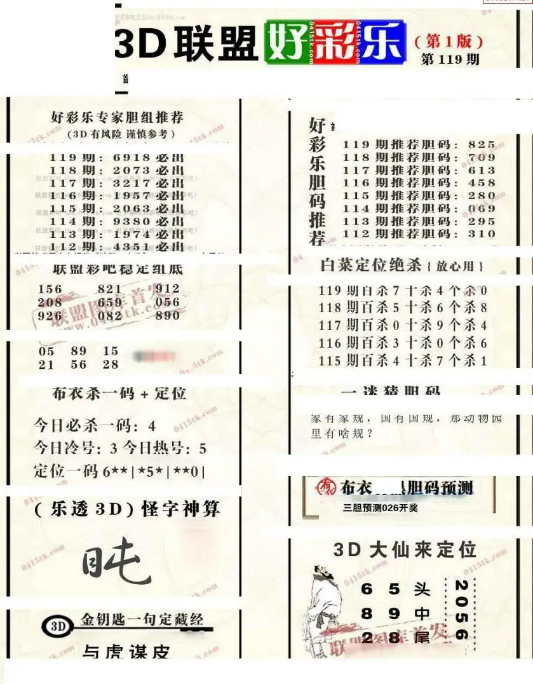 3D联盟好彩乐
(第1版)
第119期
好彩乐专家胆组推荐
(3D有风险 谨慎参考)
119期: 6918 必出
118期: 2073 必出
117期: 3217 必出
116期: 1957 必出
115期: 2063 必出
114期: 9380 必出
113期: 1974 必出
112期: 4351 必出
联盟彩吧稳定组底
156 821 912
208 659 056
926 082 890
05 89 15
21 56 28
布衣杀一码+定位
今日必杀一码: 4
今日冷号: 3 今日热号: 5
定位一码 6**|*5*|**0|
(乐透3D)怪字神算
3D 金钥匙一句定藏经
与虎谋皮
好彩乐胆码推荐
119期推荐胆码: 825
118期推荐胆码: 709
117期推荐胆码: 613
116期推荐胆码: 458
115期推荐胆码: 280
114期推荐胆码: 069
113期推荐胆码: 295
112期推荐胆码: 310
白菜定位绝杀{放心用}
119期百杀7十杀4个杀0
118期百杀5十杀6个杀8
117期百杀0十杀9个杀4
116期百杀3十杀0个杀6
115期百杀4十杀7个杀1
一迷猜胆码
家有家规, 国有国规, 那动物园
里有啥规?
布衣 胆码预测
三胆预测026开奖
3D大仙来定位
6 5 头
8 9 中
2 8 尾
2056